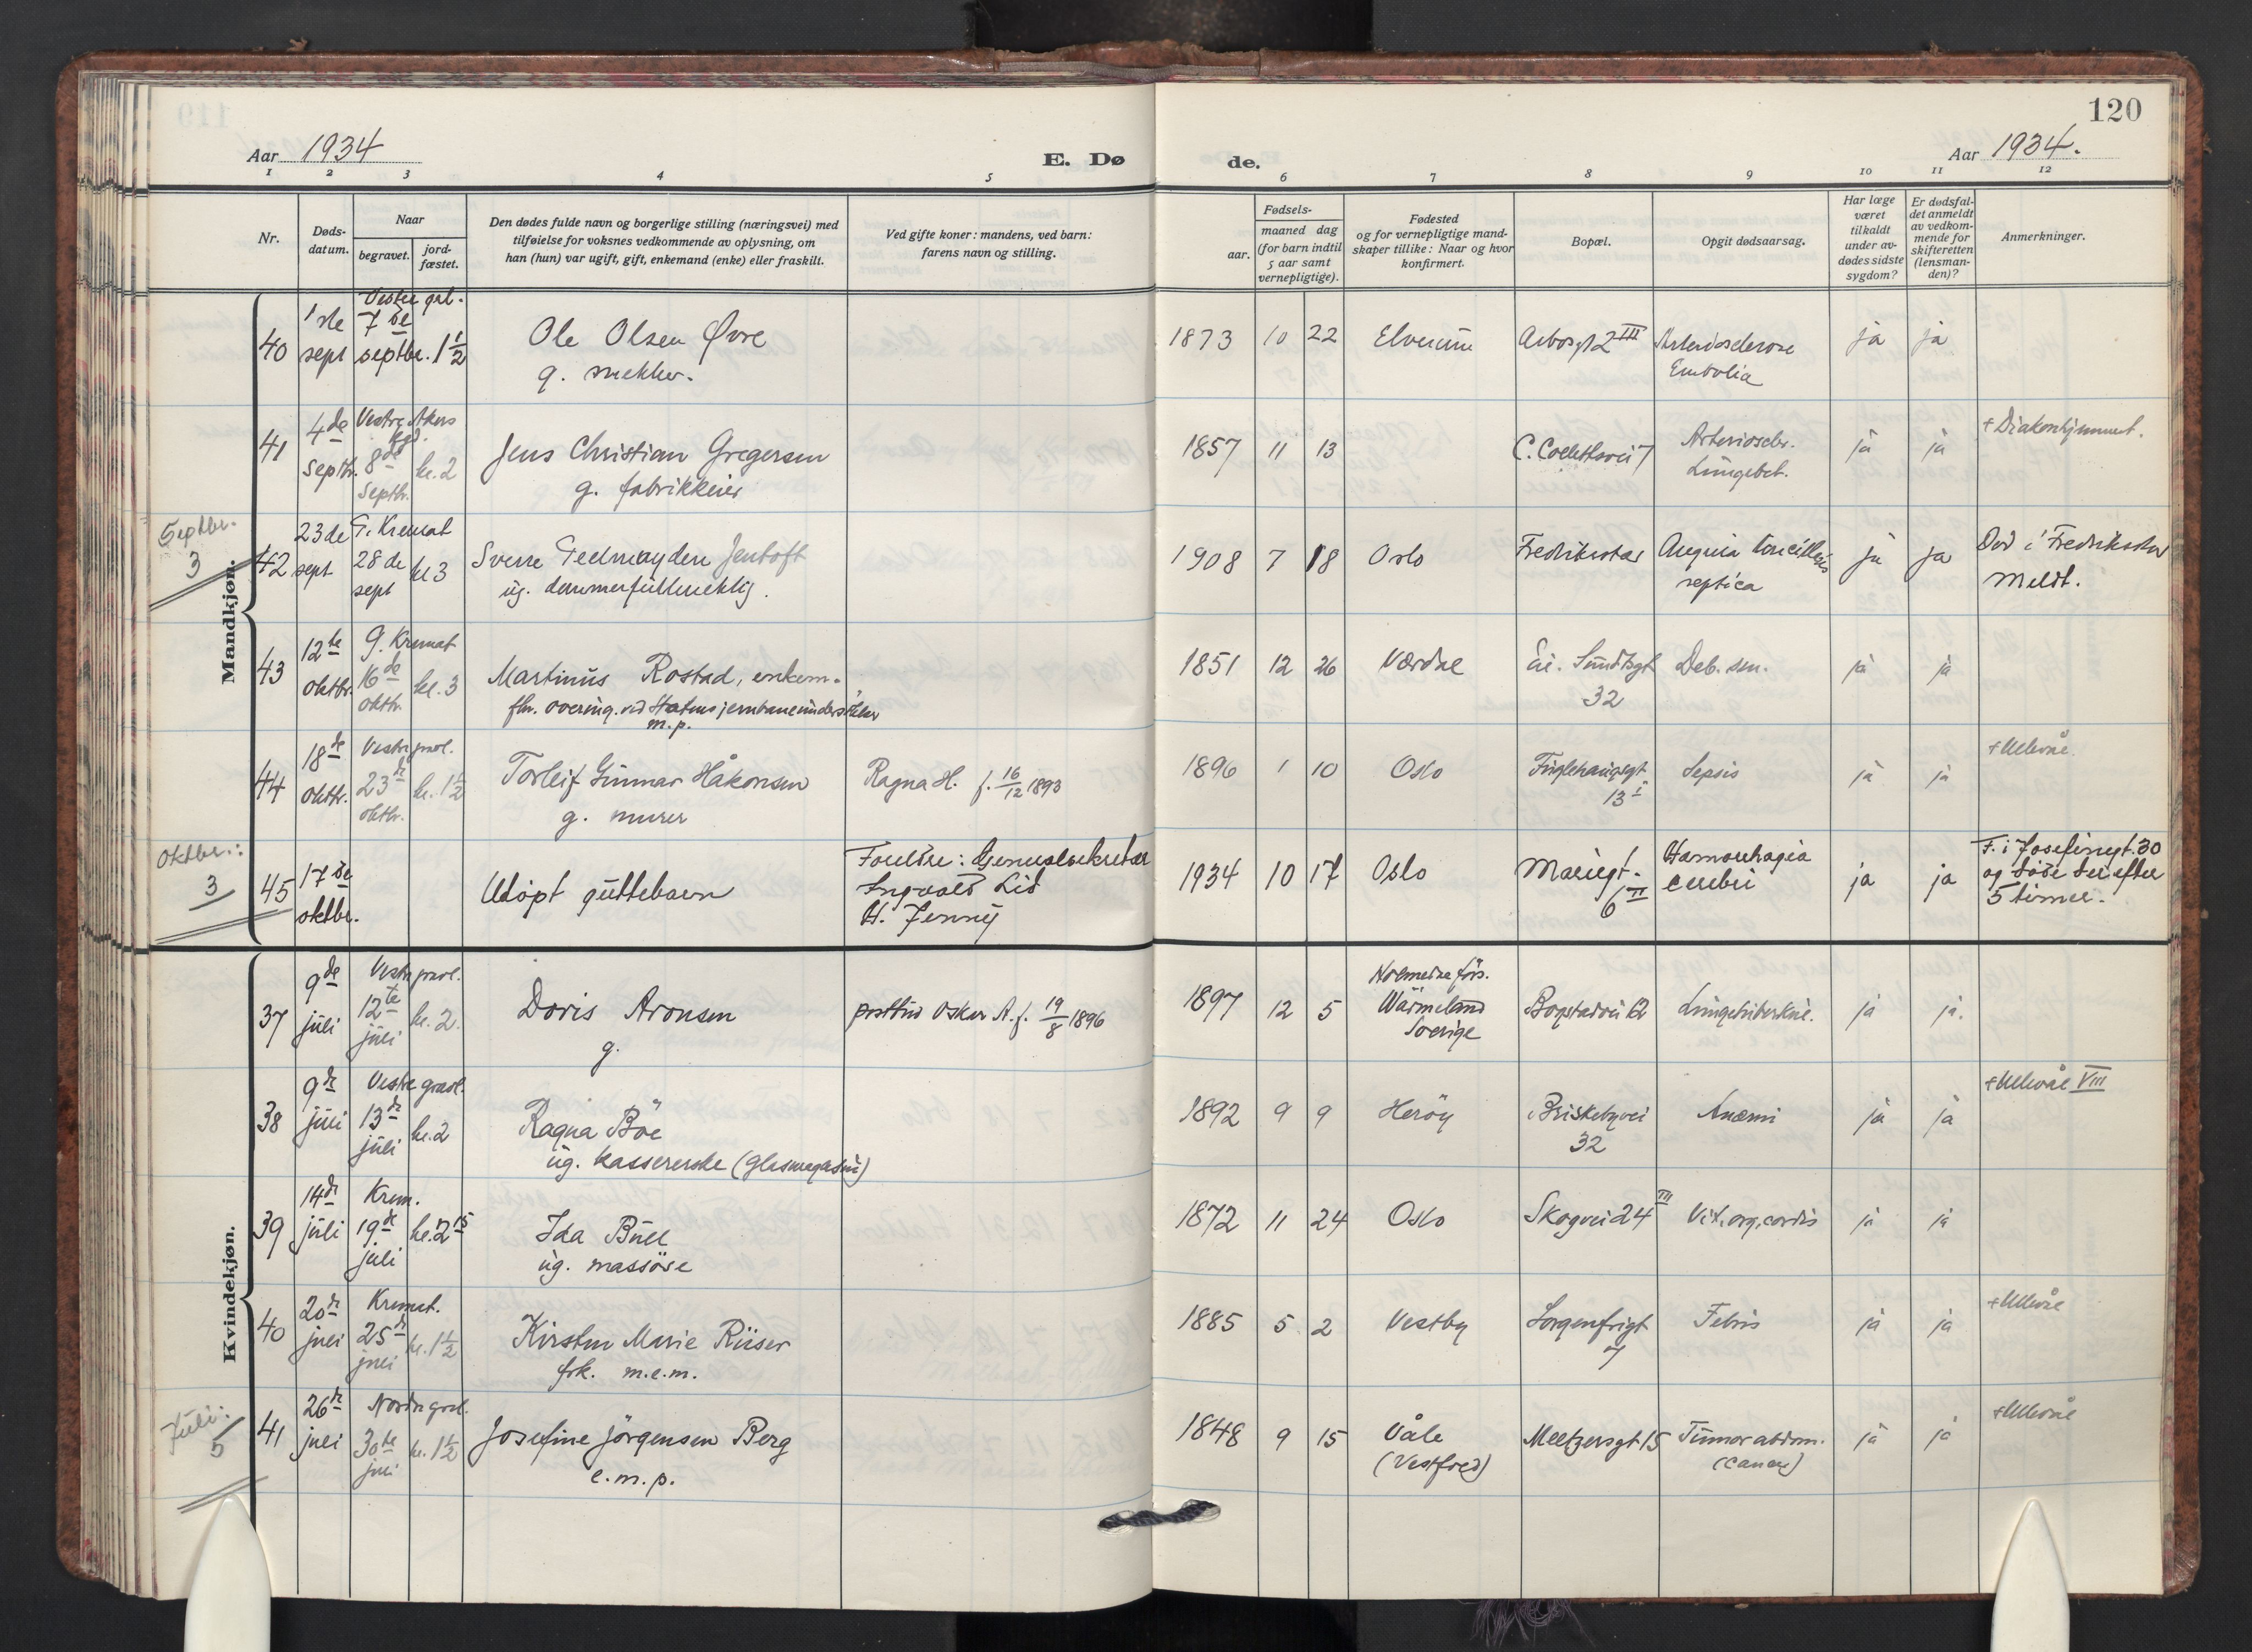 120
Aar 1934
E. Dø
de.
Aar 1934.
1 2 3 4 5 6 7 8 9 10 11 12
Nr.
Døds-
datum.
Naar
begravet.
jord-
fæstet.
Den dødes fulde navn og borgerlige stilling (næringsvei) med
tilføielse for voksnes vedkommende av oplysning, om
han (hun) var ugift, gift, enkemand (enke) eller fraskilt.
Ved gifte koner: mandens, ved barn:
farens navn og stilling.
Fødsels-
aar.
maaned dag
(for barn indtil
5 aar samt
vernepligtige).
Fødested
og for vernepligtige mand-
skaper tillike: Naar og hvor
konfirmert.
Bopæl.
Opgit dødsaarsag.
Har læge
været
tilkaldt
under av-
dødes sidste
sygdom?
Er dødsfal-
det anmeldt
av vedkom-
mende for
skifteretten
(lensman-
den)?
Anmerkninger.
Mandkjøn.
40
1ste
sept
7de
septbr.
1 1/2
Ole Olsen Øvre
g. snekker.
1873 10 22
Elverum
Arbosgt 2 III
Arteriosclerose
Embolia
ja ja
41
4de
Septbr.
Vestre Akers
kgd.
8de
Septbr.
kl. 2
Jens Christian Gregersen
g. fabrikkeier
1857 11 13
C. Collettsvei 7
Arterioscler.
Lungebet.
ja ja
+ Diakonhjemmet.
Septbr.
3
42
23de
sept
G. Kremat
28de
sept
kl 3
Sverre Geelmuyden Jentoft
ug. dommerfullmektig.
1908 7 18
Oslo
Fredrikstad
Angina toncillaris
septica
ja ja
Død i Fredrikstad
Meldt.
43
12te
oktbr.
G. Kremat
16de
oktbr.
kl. 3
Martinus Rostad, enkem.
fhv. overing. ved Statens jernbaneundersökelser
m.p.
1851 12 26
Værdal
Ei. Sundtsgt
32
Deb. sen.
ja ja
44
18de
oktbr.
Vestre gravl.
23de
oktbr.
kl. 1 1/2
Torleif Gunnar Håkonsen
g. murer
Ragna H. f. 16/12 1893
1896 1 10
Oslo
Fuglehauggt
13 I
Sepsis
ja ja
+ Ullevål.
Oktbr.:
3
45
17de
oktbr.
Udöpt guttebarn
Foreldre: Generalsekretær
Ingvald Lid
H. Jenny
1934 10 17
Oslo
Mariegt.
6 II
Hæmorrhagia
cerebri
ja ja
F. i Josefinegt. 30
og døde der efter
5 timer.
Kvindekjøn.
37
9de
juli
Vestre gravl.
12te
juli
kl. 2.
Doris Aronsen
g.
postbud Oskar A. f. 19/8 1896
1897 12 5
Holmedals förs.
Wärmeland
Sverige
Bogstadvei 12
Lungetuberkul.
ja ja.
38
9de
juli
Vestre gravl.
13de
juli
kl. 2
Ragna Böe
ug. kassererske (Glasmagasin)
1892 9 9
Heröy
Briskebyvei
32
Anæmi
ja ja
+ Ullevål VIII
39
14de
juli
Krem.
19de
juli
kl. 2 15
Ida Bull
ug. massöse
1872 11 24
Oslo
Skogvei 24 III
Vit. org. cordis
ja ja
40
20de
juli
Kremat.
25de
juli
kl. 1 1/2
Kirsten Marie Riiser
frk. m.e.m.
1885 5 2
Vestby
Sorgenfrigt
7
Febris
ja ja
+ Ullevål
Juli:
5
41
26de
juli
Nordre gravl.
30te
juli
kl. 1 1/2
Josefine Jörgensen Berg
e.m.p.
1848 9 15
Våle
(Vestfold)
Meltzersgt 15
Tumor abdom.
(cancer)
ja ja
+ Ullevål